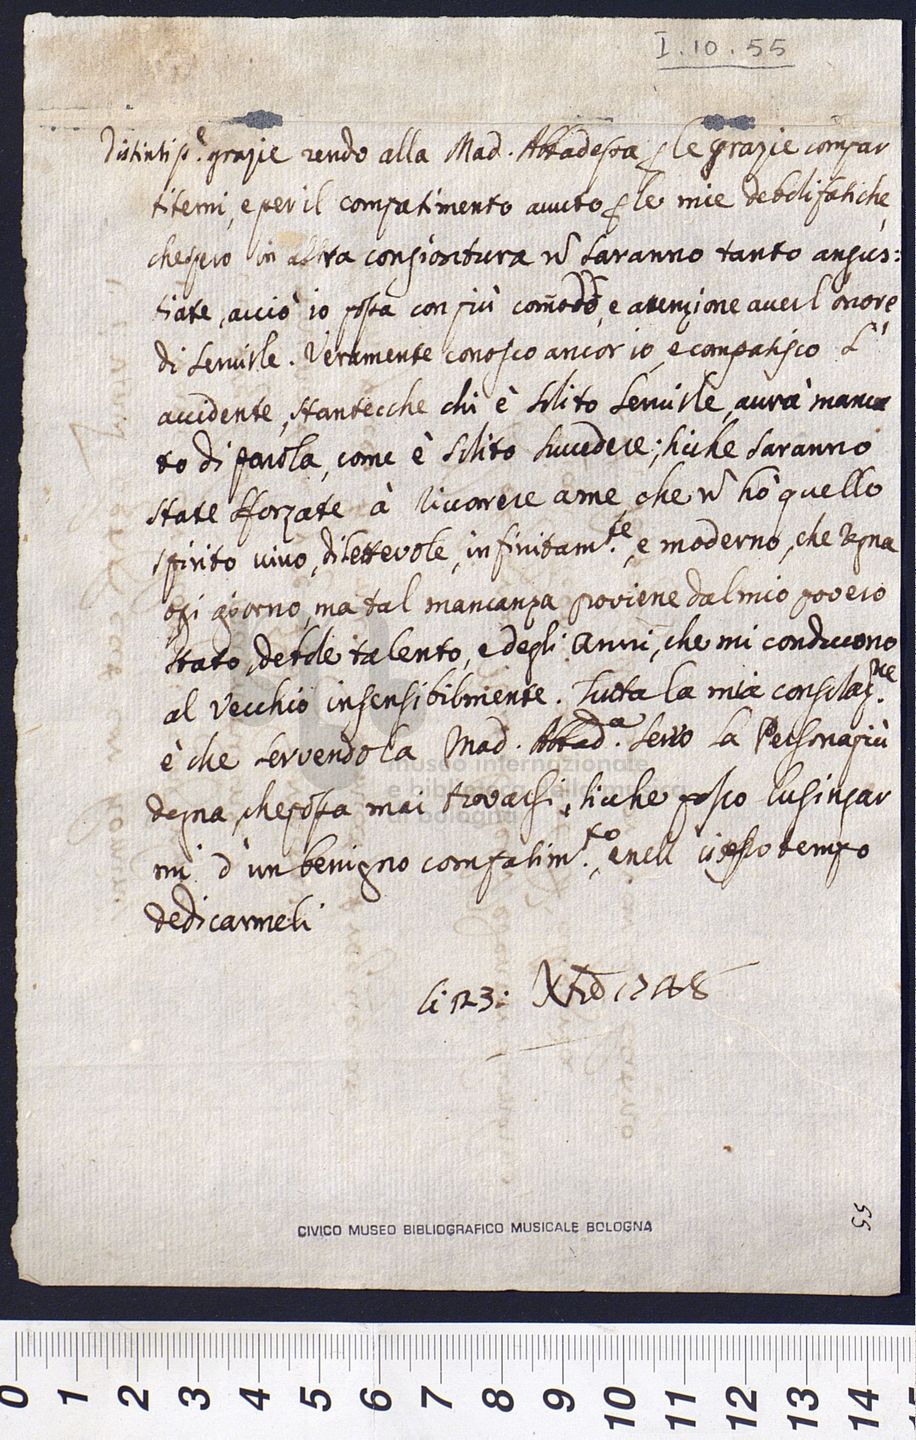 I.10.55
Distintiss.e grazie rendo alla Mad. Abbadessa p le grazie compar
titemi, e per il compatimento avuto p le mie debolifatiche,
che spero in altra congiontura ñ saranno tanto angus:
tiate, acciò io possa con più comodo, e attenzione aver l'onore
di servirle. Veramente conosco ancor io, e compatisco l'
accidente, stantecche chi è solito servirle, avrà manca
to di parola, come è solito succedere; sicche saranno
state sforzate à ricorrere a me, che ñ hò quello
spirito vivo, dilettevole, infinitam.te, e moderno, che regna
ogi giorno, ma tal mancanza proviene dal mio povero
stato, debole talento, e degli anni, che mi conducono
al vecchio insensibilmente. Tutta la mia consolaz.ne
è che servendo la Mad. Abbad.a servo la Persona più
degna, che possa mai trovarsi, sicche posso lusingar
mi d'un benigno compatim.to, e nell'istesso tempo
dedicarmeli
li 23: Xbre 1748
museo internazionale
e biblioteca della musica
bologna
CIVICO MUSEO BIBLIOGRAFICO MUSICALE BOLOGNA
55
0 1 2 3 4 5 6 7 8 9 10 11 12 13 14